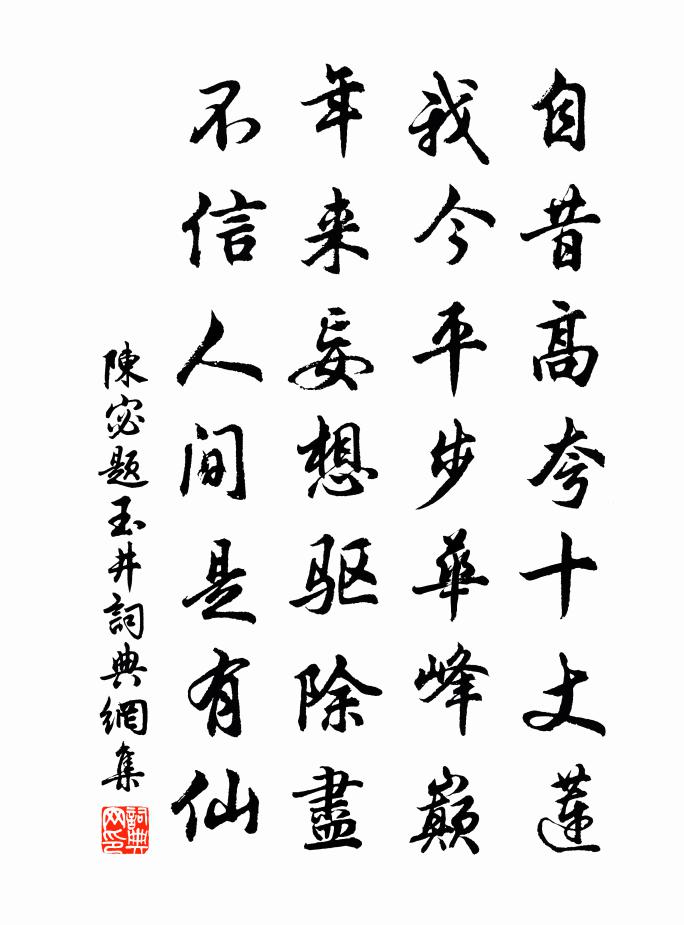 自昔高夸十丈莲
我今平步華峰巅
年来妄想驱除盡
不信人间是有仙
陳宓题玉井詞典網集
詞典网印